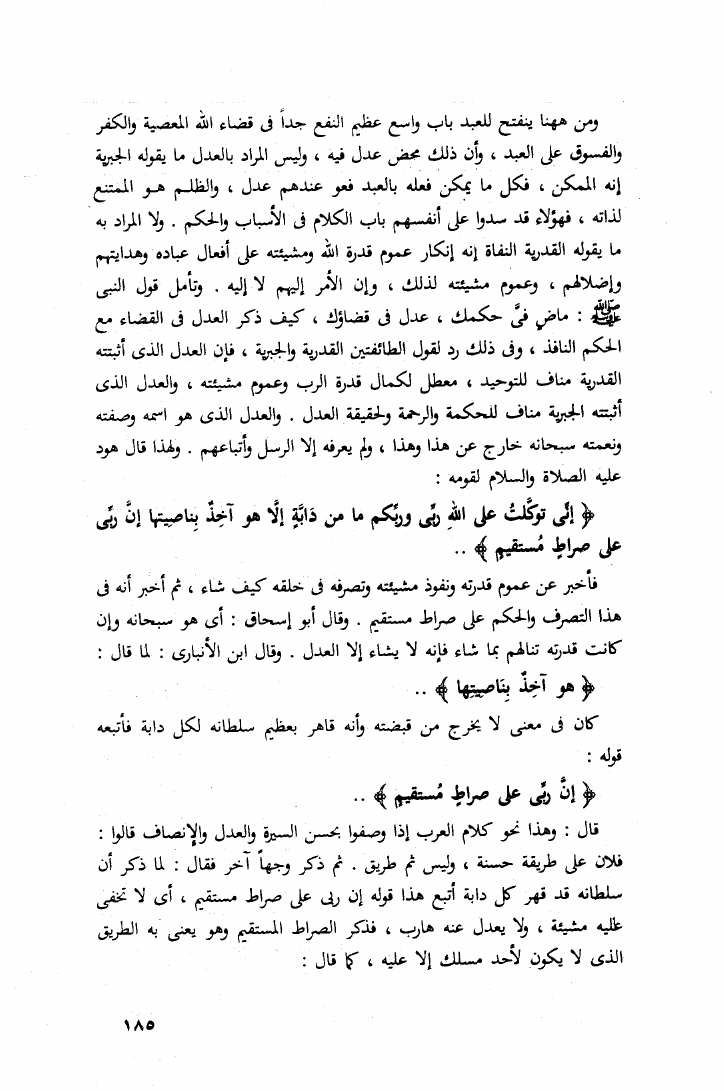 ومن ههنا ينفتح للعبد باب واسع عظيم النفع جداً فى قضاء الله المعصية والكفر
والفسوق على العبد ، وأن ذلك محض عدل فيه ، وليس المراد بالعدل ما يقوله الجبرية
إنه الممكن ، فكل ما يمكن فعله بالعبد فعو عندهم عدل ، والظلم هو الممتنع
لذاته ، فهؤلاء قد سدوا على أنفسهم باب الكلام فى الأسباب والحكم . ولا المراد به
ما يقوله القدرية النفاة إنه إنكار عموم قدرة الله ومشيئته على أفعال عباده وهدايتهم
وإضلالهم ، وعموم مشيئته لذلك ، وإن الأمر إليهم لا إليه . وتأمل قول النبى
ﷺ : ماضٍ فىَّ حكمك ، عدل فى قضاؤك ، كيف ذكر العدل فى القضاء مع
الحكم النافذ ، وفى ذلك رد لقول الطائفتين القدرية والجبرية ، فإن العدل الذى أثبتته
القدرية مناف للتوحيد ، معطل لكمال قدرة الرب وعموم مشيئته ، والعدل الذى
أثبتته الجبرية مناف للحكمة والرحمة ولحقيقة العدل . والعدل الذى هو اسمه وصفته
ونعمته سبحانه خارج عن هذا وهذا ، ولم يعرفه إلا الرسل وأتباعهم . ولهذا قال هود
عليه الصلاة والسلام لقومه :
﴿ إنِّى توكَّلتُ على اللهِ ربِّى وربِّكم ما من دَابَّةٍ إلَّا هو آخِذٌ بِناصيتها إنَّ ربِّى
على صراطٍ مُستقيمٍ ﴾ ..
فأخبر عن عموم قدرته ونفوذ مشيئته وتصرفه فى خلقه كيف شاء ، ثم أخبر أنه فى
هذا التصرف والحكم على صراط مستقيم . وقال أبو إسحاق : أى هو سبحانه وإن
كانت قدرته تنالهم بما شاء فإنه لا يشاء إلا العدل . وقال ابن الأنبارى : لما قال :
﴿ هو آخِذٌ بِنَاصيتِها ﴾ ..
كان فى معنى لا يخرج من قبضته وأنه قاهر بعظيم سلطانه لكل دابة فأتبعه
قوله :
﴿ إنَّ ربِّى على صراطٍ مُستقيمٍ ﴾ ..
قال : وهذا نحو كلام العرب إذا وصفوا بحسن السيرة والعدل والإنصاف قالوا :
فلان على طريقة حسنة ، وليس ثم طريق . ثم ذكر وجهاً آخر فقال : لما ذكر أن
سلطانه قد قهر كل دابة أتبع هذا قوله إن ربى على صراط مستقيم ، أى لا تخفى
عليه مشيئة ، ولا يعدل عنه هارب ، فذكر الصراط المستقيم وهو يعنى به الطريق
الذى لا يكون لأحد مسلك إلا عليه ، كما قال :
١٨٥